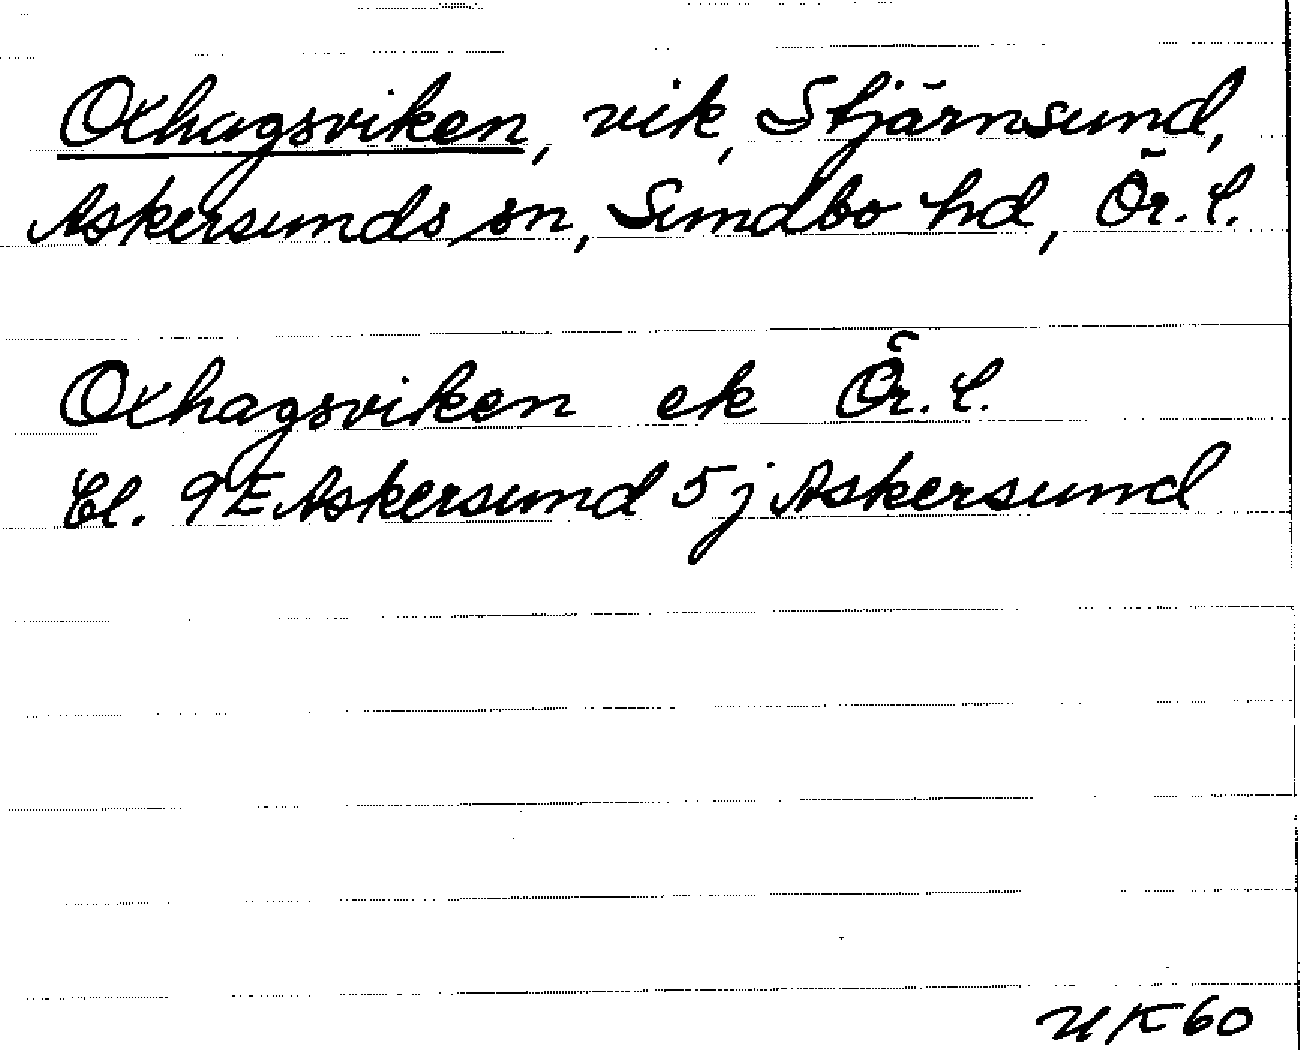 Oxhagsviken, vik, Stjärnsund,
Askersunds sn, Sundbo hd, Ör. l.
Oxhagsviken ek Ör. l.
Bl. 9E Askersund 5j Askersund
UK 60